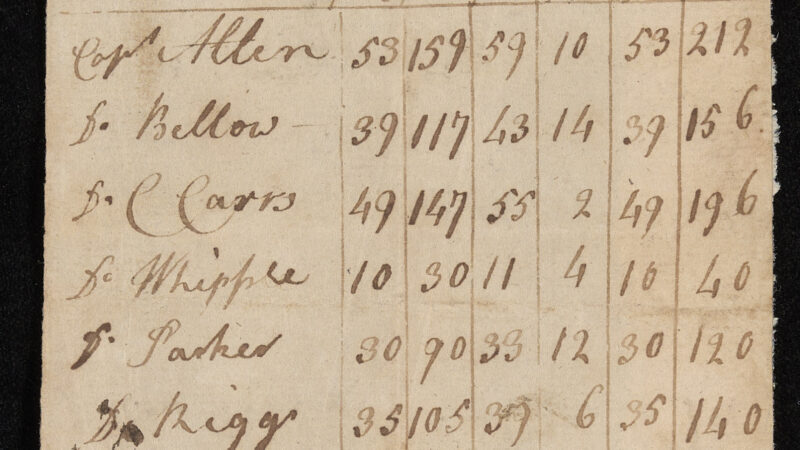 Capt Allen 53 159 59 10 53 212
Do Bellow 39 117 43 14 39 156
Do C Carrs 49 147 55 2 49 196
Do Whipple 10 30 11 4 10 40
Do Parker 30 90 33 12 30 120
Do Riggs 35 105 39 6 35 140